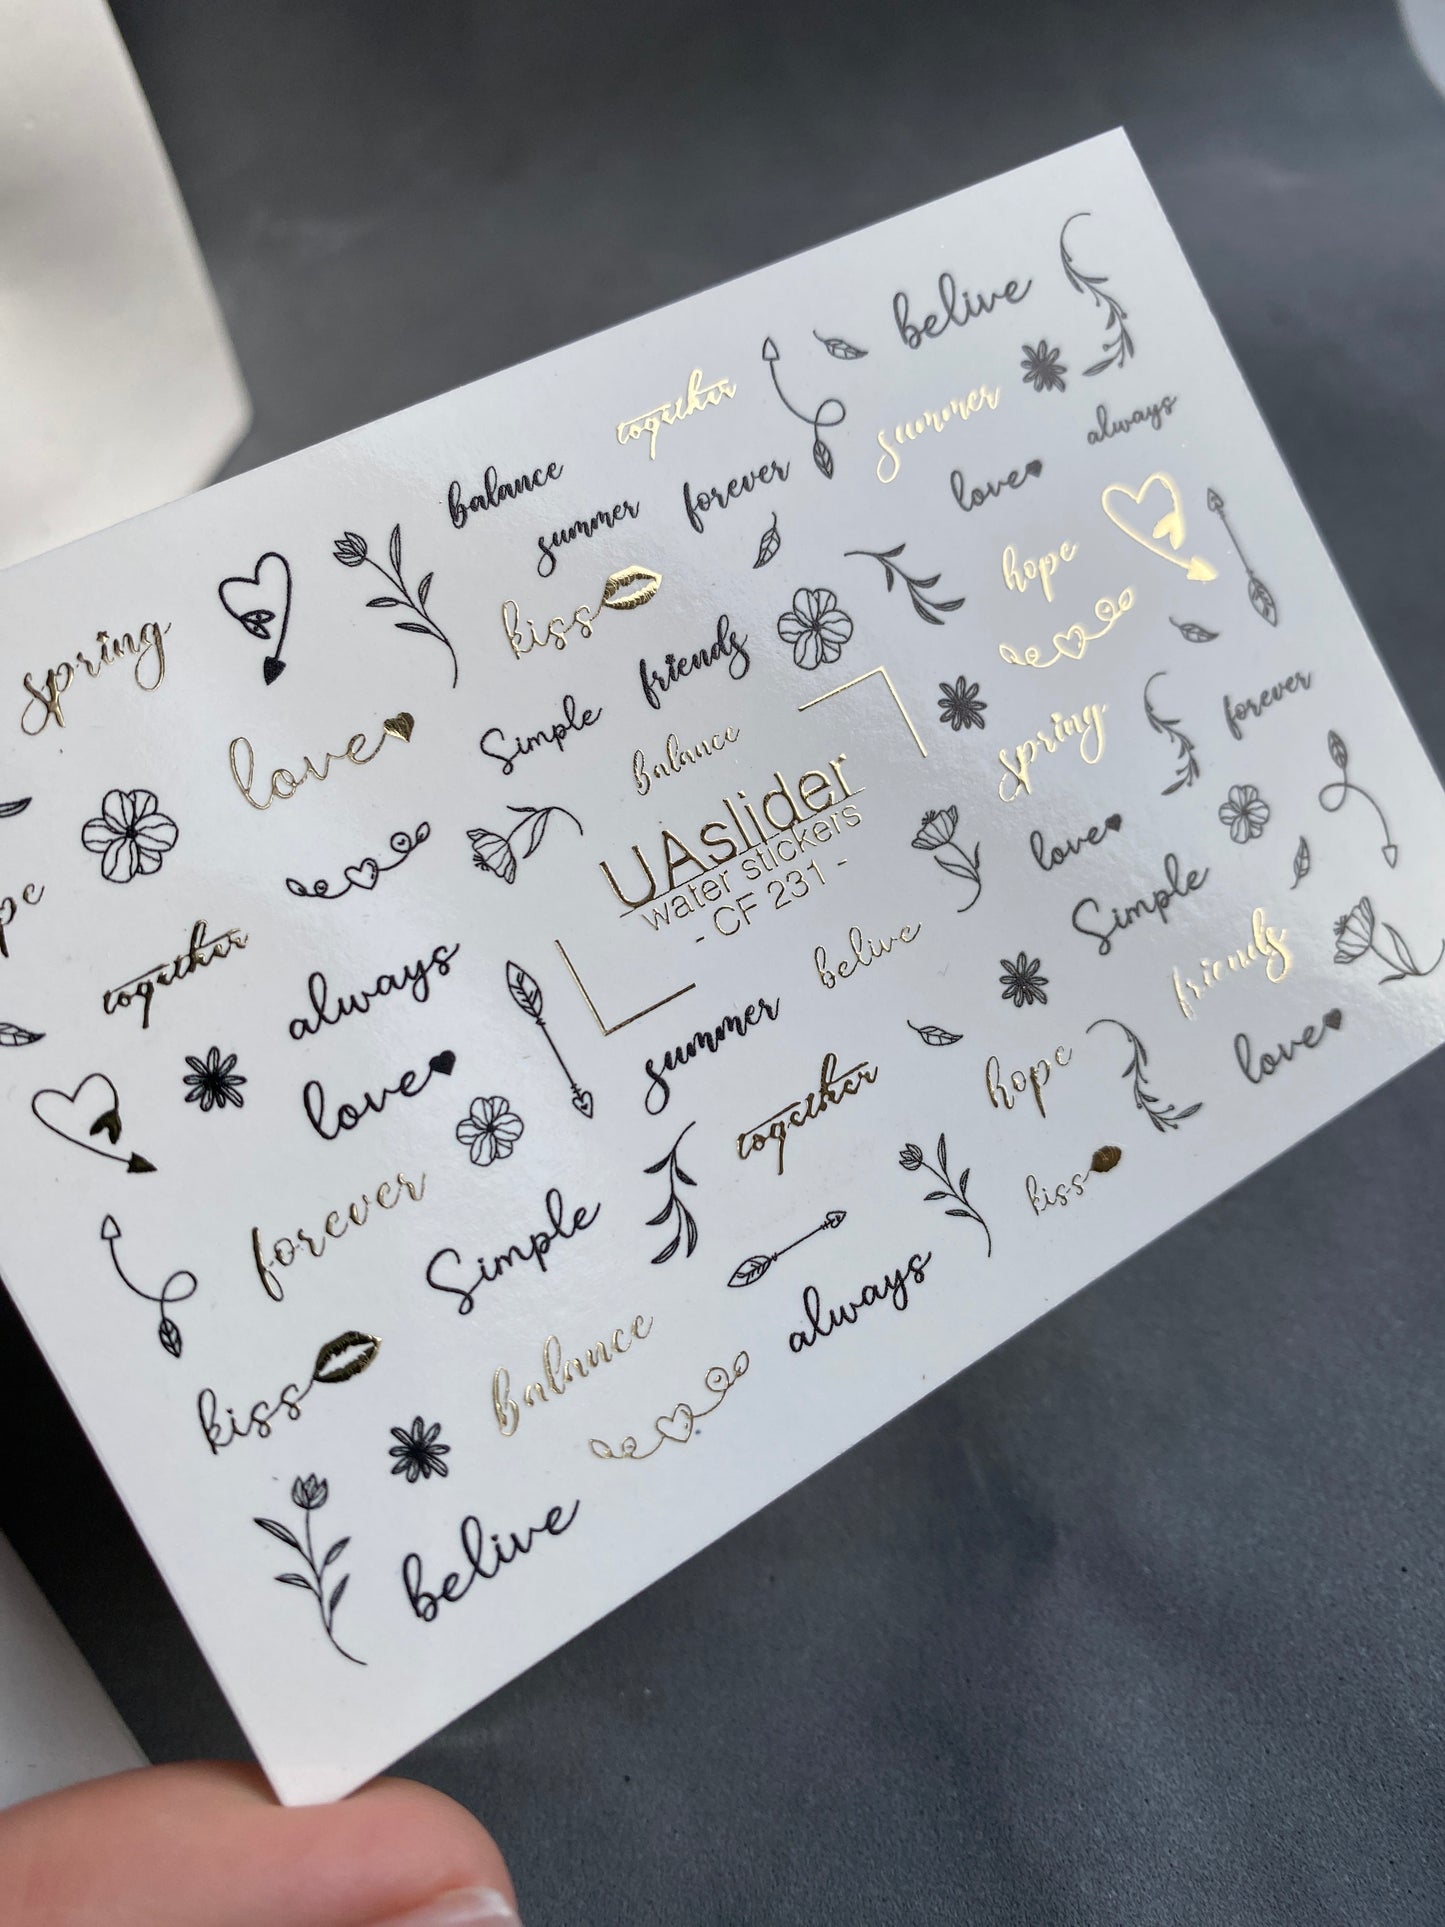 belive
together
summer
always
balance
forever
love
summer
hope
kiss
spring
friends
forever
love
Simple
spring
balance
love
UAslider
water stickers
- CF 231 -
Simple
together
belive
friends
always
summer
love
love
together
hope
forever
kiss
Simple
always
kiss
balance
belive